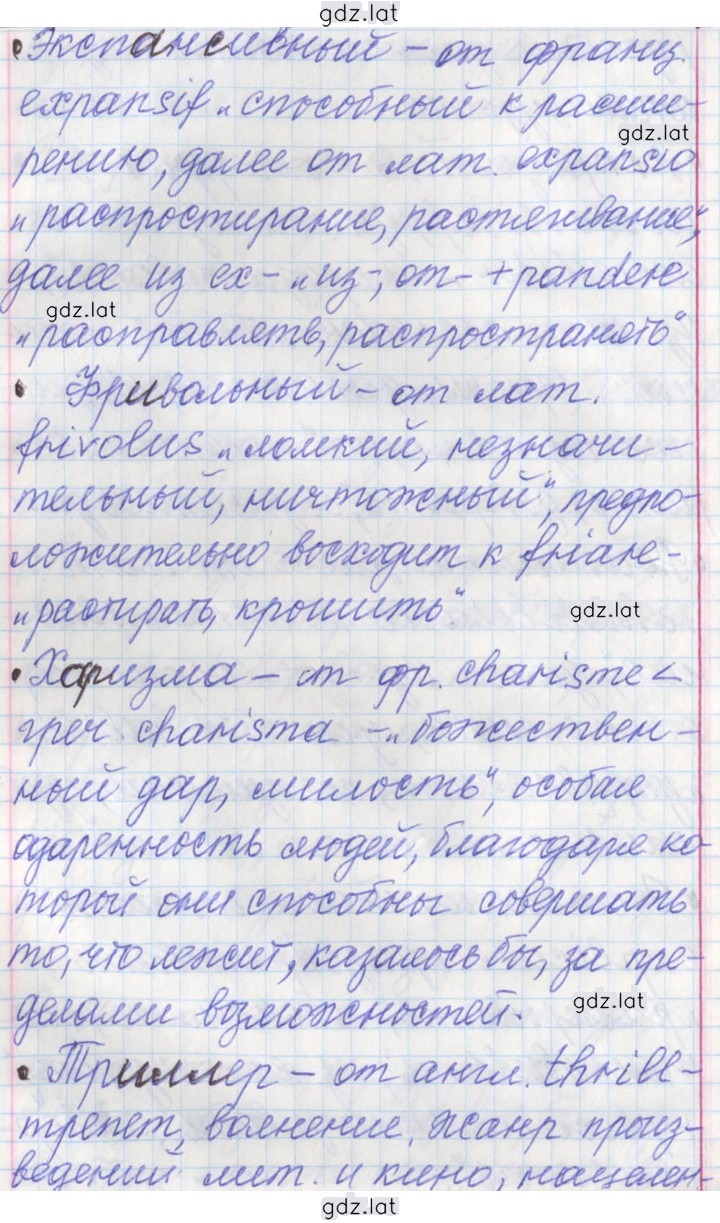 gdz.lat
• Экспансивный – от франц.
expansif „способный к расши-
gdz.lat
рению, далее от лат. expansio
„распростирание, растягивание“,
далее из ex- „из-, от- + pandere
gdz.lat
„расправлять, распространять“
• Фривольный – от лат.
frivolus „ломкий, незначи-
тельный, ничтожный“, предпо-
ложительно восходит к friare –
„растирать, крошить“
gdz.lat
• Харизма – от фр. charisme <
греч. charisma – „божествен-
ный дар, милость“, особая
одаренность людей, благодаря ко-
торой они способны совершать
то, что лежит, казалось бы, за пре-
делами возможностей.
gdz.lat
• Триллер – от англ. thrill –
трепет, волнение. Жанр произ-
ведений лит. и кино, нацелен-
gdz.lat